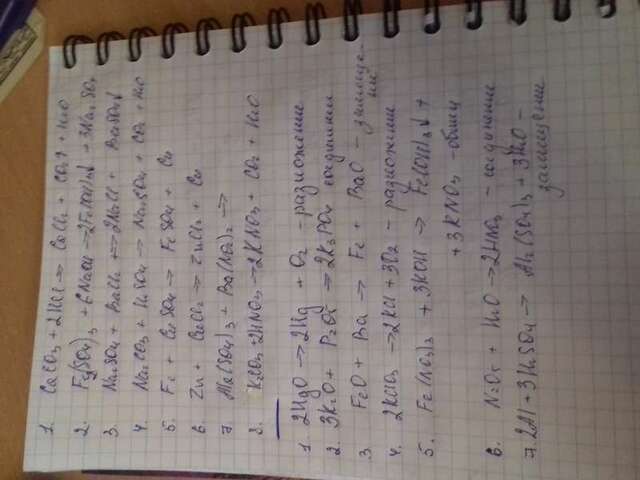 1. CaCO3 + 2HCl → CaCl2 + CO2↑ + H2O
2. Fe2(SO4)3 + 6NaOH → 2Fe(OH)3↓ + 3Na2SO4
3. Na2SO4 + BaCl2 → 2NaCl + BaSO4↓
4. Na2CO3 + H2SO4 → Na2SO4 + CO2 + H2O
5. Fe + CuSO4 → FeSO4 + Cu
6. Zn + CuCl2 → ZnCl2 + Cu
7. Al2(SO4)3 + Ba(NO3)2 →
8. K2CO3 + 2HNO3 → 2KNO3 + CO2 + H2O
1. 2HgO → 2Hg + O2 - разложение
2. 3K2O + P2O5 → 2K3PO4 соединения
3. FeO + Ba → Fe + BaO - замеще-
ния
4. 2KClO3 → 2KCl + 3O2 - разложение
5. Fe(NO3)3 + 3KOH → Fe(OH)3↓ +
+ 3KNO3 - обмен
6. N2O5 + H2O → 2HNO3 - соединение
7. 2Al + 3H2SO4 → Al2(SO4)3 + 3H2O -
замещения